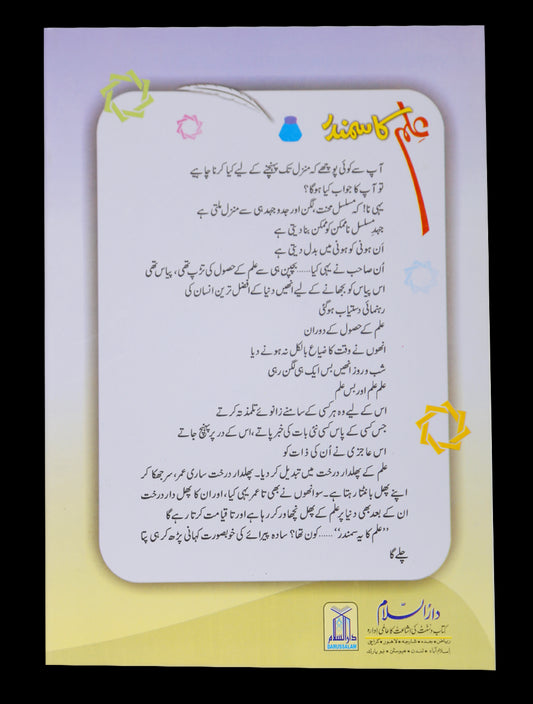 علم کا سمندر
آپ سے کوئی پوچھے کہ منزل تک پہنچنے کے لیے کیا کرنا چاہیے
تو آپ کا جواب کیا ہوگا؟
یہی نا! کہ مسلسل محنت، لگن اور جدو جہد ہی سے منزل ملتی ہے
جہدِ مسلسل ناممکن کو ممکن بنا دیتی ہے
اَن ہونی کو ہونی میں بدل دیتی ہے
اُن صاحب نے یہی کیا...... بچپن ہی سے علم کے حصول کی تڑپ تھی، پیاس تھی
اس پیاس کو بجھانے کے لیے انھیں دنیا کے افضل ترین انسان کی
رہنمائی دستیاب ہوگئی
علم کے حصول کے دوران
انھوں نے وقت کا ضیاع بالکل نہ ہونے دیا
شب و روز انھیں بس ایک ہی لگن رہی
علم علم اور بس علم
اس کے لیے وہ ہر کسی کے سامنے زانوئے تلمذ تہ کرتے
جس کسی کے پاس کسی نئی بات کی خبر پاتے، اس کے در پر پہنچ جاتے
اس عاجزی نے اُن کی ذات کو
علم کے پھلدار درخت میں تبدیل کر دیا۔ پھلدار درخت ساری عمر، سر جھکا کر
اپنے پھل بانٹتا رہتا ہے۔ سو انھوں نے بھی تا عمر یہی کیا، اور ان کا پھل دار درخت
ان کے بعد بھی دنیا پر علم کے پھل نچھاور کر رہا ہے اور تا قیامت کرتا رہے گا
”علم کا یہ سمندر“...... کون تھا؟ سادہ پیرائے کی خوبصورت کہانی پڑھ کر ہی پتا
چلے گا
دارالسلام
کتاب و سنت کی اشاعت کا عالمی ادارہ
ریاض • جدہ • شارجہ • لاہور • کراچی
اسلام آباد • لندن • ہیوسٹن • نیو یارک
دارالسلام
DARUSSALAM